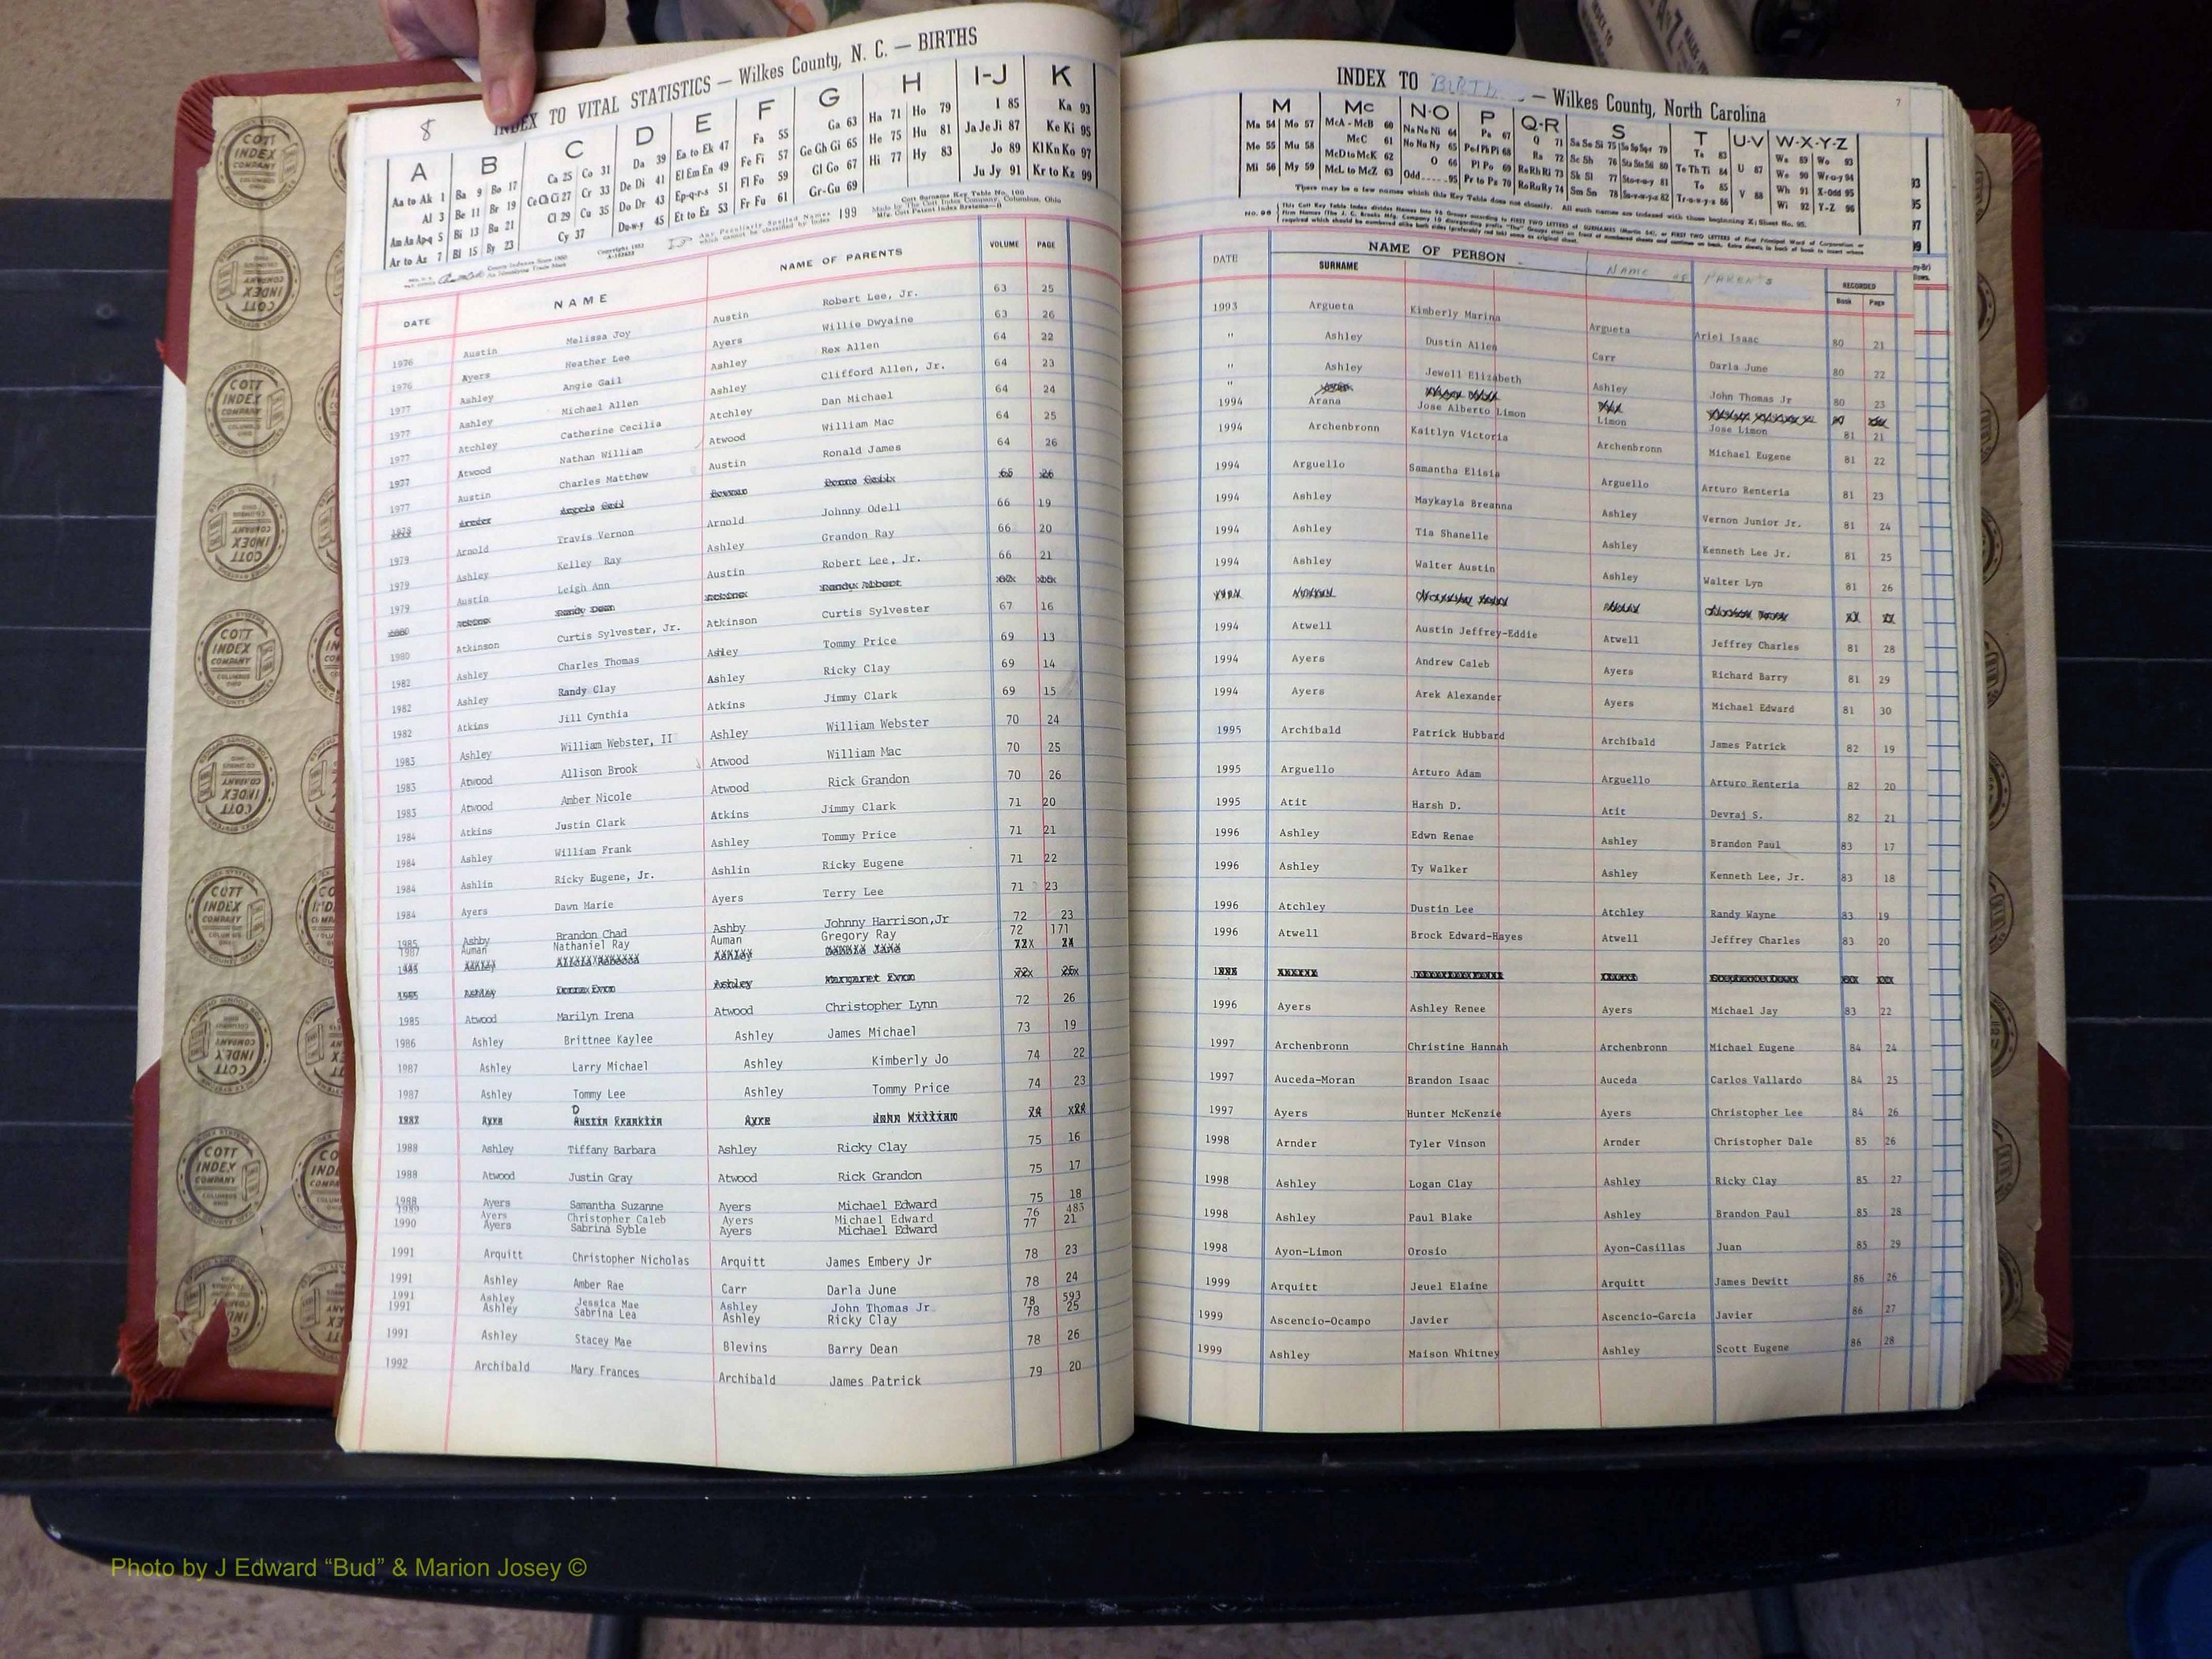 8
INDEX TO VITAL STATISTICS — Wilkes County, N. C. — BIRTHS
A B C D E F G H I-J K
Aa to Ak 1 Ba 9 Bo 17 Ca 25 Co 31 Da 39 Ea to Ek 47 Fa 55 Ga 63 Ha 71 Ho 79 I 85 Ka 93
Al 3 Be 11 Br 19 Ce Ch Ci 27 Cr 33 De Di 41 El Em En 49 Fe Fi 57 Ge Gh Gi 65 He 75 Hu 81 Ja Je Ji 87 Ke Ki 95
Am An Ap-q 5 Bi 13 Bu 21 Cl 29 Cu 35 Do Dr 43 Ep-q-r-s 51 Fl Fo 59 Gl Go 67 Hi 77 Hy 83 Jo 89 Kl Kn Ko 97
Ar to Az 7 Bl 15 By 23 Cy 37 Du-w-y 45 Et to Ez 53 Fr Fu 61 Gr-Gu 69 Ju Jy 91 Kr to Kz 99
Any Peculiarly Spelled Names which cannot be classified by Index 199
Cott Surname Key Table No. 100
DATE NAME NAME OF PARENTS VOLUME PAGE
1976 Austin Melissa Joy Austin Robert Lee, Jr. 63 25
1976 Ayers Heather Lee Ayers Willie Dwyaine 63 26
1977 Ashley Angie Gail Ashley Rex Allen 64 22
1977 Ashley Michael Allen Ashley Clifford Allen, Jr. 64 23
1977 Atchley Catherine Cecilia Atchley Dan Michael 64 24
1977 Atwood Nathan William Atwood William Mac 64 25
1977 Austin Charles Matthew Austin Ronald James 64 26
1979 Arnold Travis Vernon Arnold Johnny Odell 66 19
1979 Ashley Kelley Ray Ashley Grandon Ray 66 20
1979 Austin Leigh Ann Austin Robert Lee, Jr. 66 21
1980 Atkinson Curtis Sylvester, Jr. Atkinson Curtis Sylvester 67 16
1982 Ashley Charles Thomas Ashley Tommy Price 69 13
1982 Ashley Randy Clay Ashley Ricky Clay 69 14
1982 Atkins Jill Cynthia Atkins Jimmy Clark 69 15
1983 Ashley William Webster, II Ashley William Webster 70 24
1983 Atwood Allison Brook Atwood William Mac 70 25
1983 Atwood Amber Nicole Atwood Rick Grandon 70 26
1984 Atkins Justin Clark Atkins Jimmy Clark 71 20
1984 Ashley William Frank Ashley Tommy Price 71 21
1984 Ashlin Ricky Eugene, Jr. Ashlin Ricky Eugene 71 22
1984 Ayers Dawn Marie Ayers Terry Lee 71 23
1985 Ashby Brandon Chad Ashby Johnny Harrison,Jr 72 23
1987 Auman Nathaniel Ray Auman Gregory Ray 72 171
1985 Ashley Donna Evon Ashley Margaret Evon 72x 25x
1985 Atwood Marilyn Irena Atwood Christopher Lynn 72 26
1986 Ashley Brittnee Kaylee Ashley James Michael 73 19
1987 Ashley Larry Michael Ashley Kimberly Jo 74 22
1987 Ashley Tommy Lee Ashley Tommy Price 74 23
1988 Ashley Tiffany Barbara Ashley Ricky Clay 75 16
1988 Atwood Justin Gray Atwood Rick Grandon 75 17
1988 Ayers Samantha Suzanne Ayers Michael Edward 75 18
1989 Ayers Christopher Caleb Ayers Michael Edward 76 483
1990 Ayers Sabrina Syble Ayers Michael Edward 77 21
1991 Arquitt Christopher Nicholas Arquitt James Embery Jr 78 23
1991 Ashley Amber Rae Carr Darla June 78 24
1991 Ashley Jessica Mae Ashley John Thomas Jr 78 593
1991 Ashley Sabrina Lea Ashley Ricky Clay 78 25
1991 Ashley Stacey Mae Blevins Barry Dean 78 26
1992 Archibald Mary Frances Archibald James Patrick 79 20
7
INDEX TO BIRTH — Wilkes County, North Carolina
M Mc N-O P Q-R S T U-V W-X-Y-Z
Ma 54 Mo 57 McA - McB 60 Na Ne Ni 64 Pa 67 Q 71 Sa Se Si 75 So Sp Sq-r 79 Ta 83 Wa 89 Wo 93
Me 55 Mu 58 McC 61 No Nu Ny 65 Pe-f Ph Pi 68 Ra 72 Sc Sh 76 Sta Ste Sti 80 Te Th Ti 84 U 87 We 90 Wr-o-y 94
Mi 56 My 59 McD to McK 62 O 66 Pl Po 69 Re Rh Ri 73 Sk Sl 77 Sto-r-u-y 81 To 85 V 88 Wh 91 X-Odd 95
McL to McZ 63 Odd 95 Pr to Ps 70 Ro Ru Ry 74 Sm Sn 78 Su-v-w-y-z 82 Tr-o-w-y-z 86 Wi 92 Y-Z 96
There may be a few names which this Key Table does not classify. All such names are indexed with those beginning Z; Sheet No. 95.
DATE NAME OF PERSON NAME OF PARENTS RECORDED
SURNAME Book Page
1993 Argueta Kimberly Marina Argueta Ariel Isaac 80 21
" Ashley Dustin Allen Carr Darla June 80 22
" Ashley Jewell Elizabeth Ashley John Thomas Jr 80 23
1994 Arana Jose Alberto Limon Limon Jose Limon 81 21
1994 Archenbronn Kaitlyn Victoria Archenbronn Michael Eugene 81 22
1994 Arguello Samantha Elisia Arguello Arturo Renteria 81 23
1994 Ashley Maykayla Breanna Ashley Vernon Junior Jr. 81 24
1994 Ashley Tia Shanelle Ashley Kenneth Lee Jr. 81 25
1994 Ashley Walter Austin Ashley Walter Lyn 81 26
1994 Atwell Austin Jeffrey-Eddie Atwell Jeffrey Charles 81 28
1994 Ayers Andrew Caleb Ayers Richard Barry 81 29
1994 Ayers Arek Alexander Ayers Michael Edward 81 30
1995 Archibald Patrick Hubbard Archibald James Patrick 82 19
1995 Arguello Arturo Adam Arguello Arturo Renteria 82 20
1995 Atit Harsh D. Atit Devraj S. 82 21
1996 Ashley Edwn Renae Ashley Brandon Paul 83 17
1996 Ashley Ty Walker Ashley Kenneth Lee, Jr. 83 18
1996 Atchley Dustin Lee Atchley Randy Wayne 83 19
1996 Atwell Brock Edward-Hayes Atwell Jeffrey Charles 83 20
1996 Ayers Ashley Renee Ayers Michael Jay 83 22
1997 Archenbronn Christine Hannah Archenbronn Michael Eugene 84 24
1997 Auceda-Moran Brandon Isaac Auceda Carlos Vallardo 84 25
1997 Ayers Hunter McKenzie Ayers Christopher Lee 84 26
1998 Arnder Tyler Vinson Arnder Christopher Dale 85 26
1998 Ashley Logan Clay Ashley Ricky Clay 85 27
1998 Ashley Paul Blake Ashley Brandon Paul 85 28
1998 Ayon-Limon Orosio Ayon-Casillas Juan 85 29
1999 Arquitt Jeuel Elaine Arquitt James Dewitt 86 26
1999 Ascencio-Ocampo Javier Ascencio-Garcia Javier 86 27
1999 Ashley Maison Whitney Ashley Scott Eugene 86 28
COTT INDEX COMPANY
Photo by J Edward “Bud” & Marion Josey ©